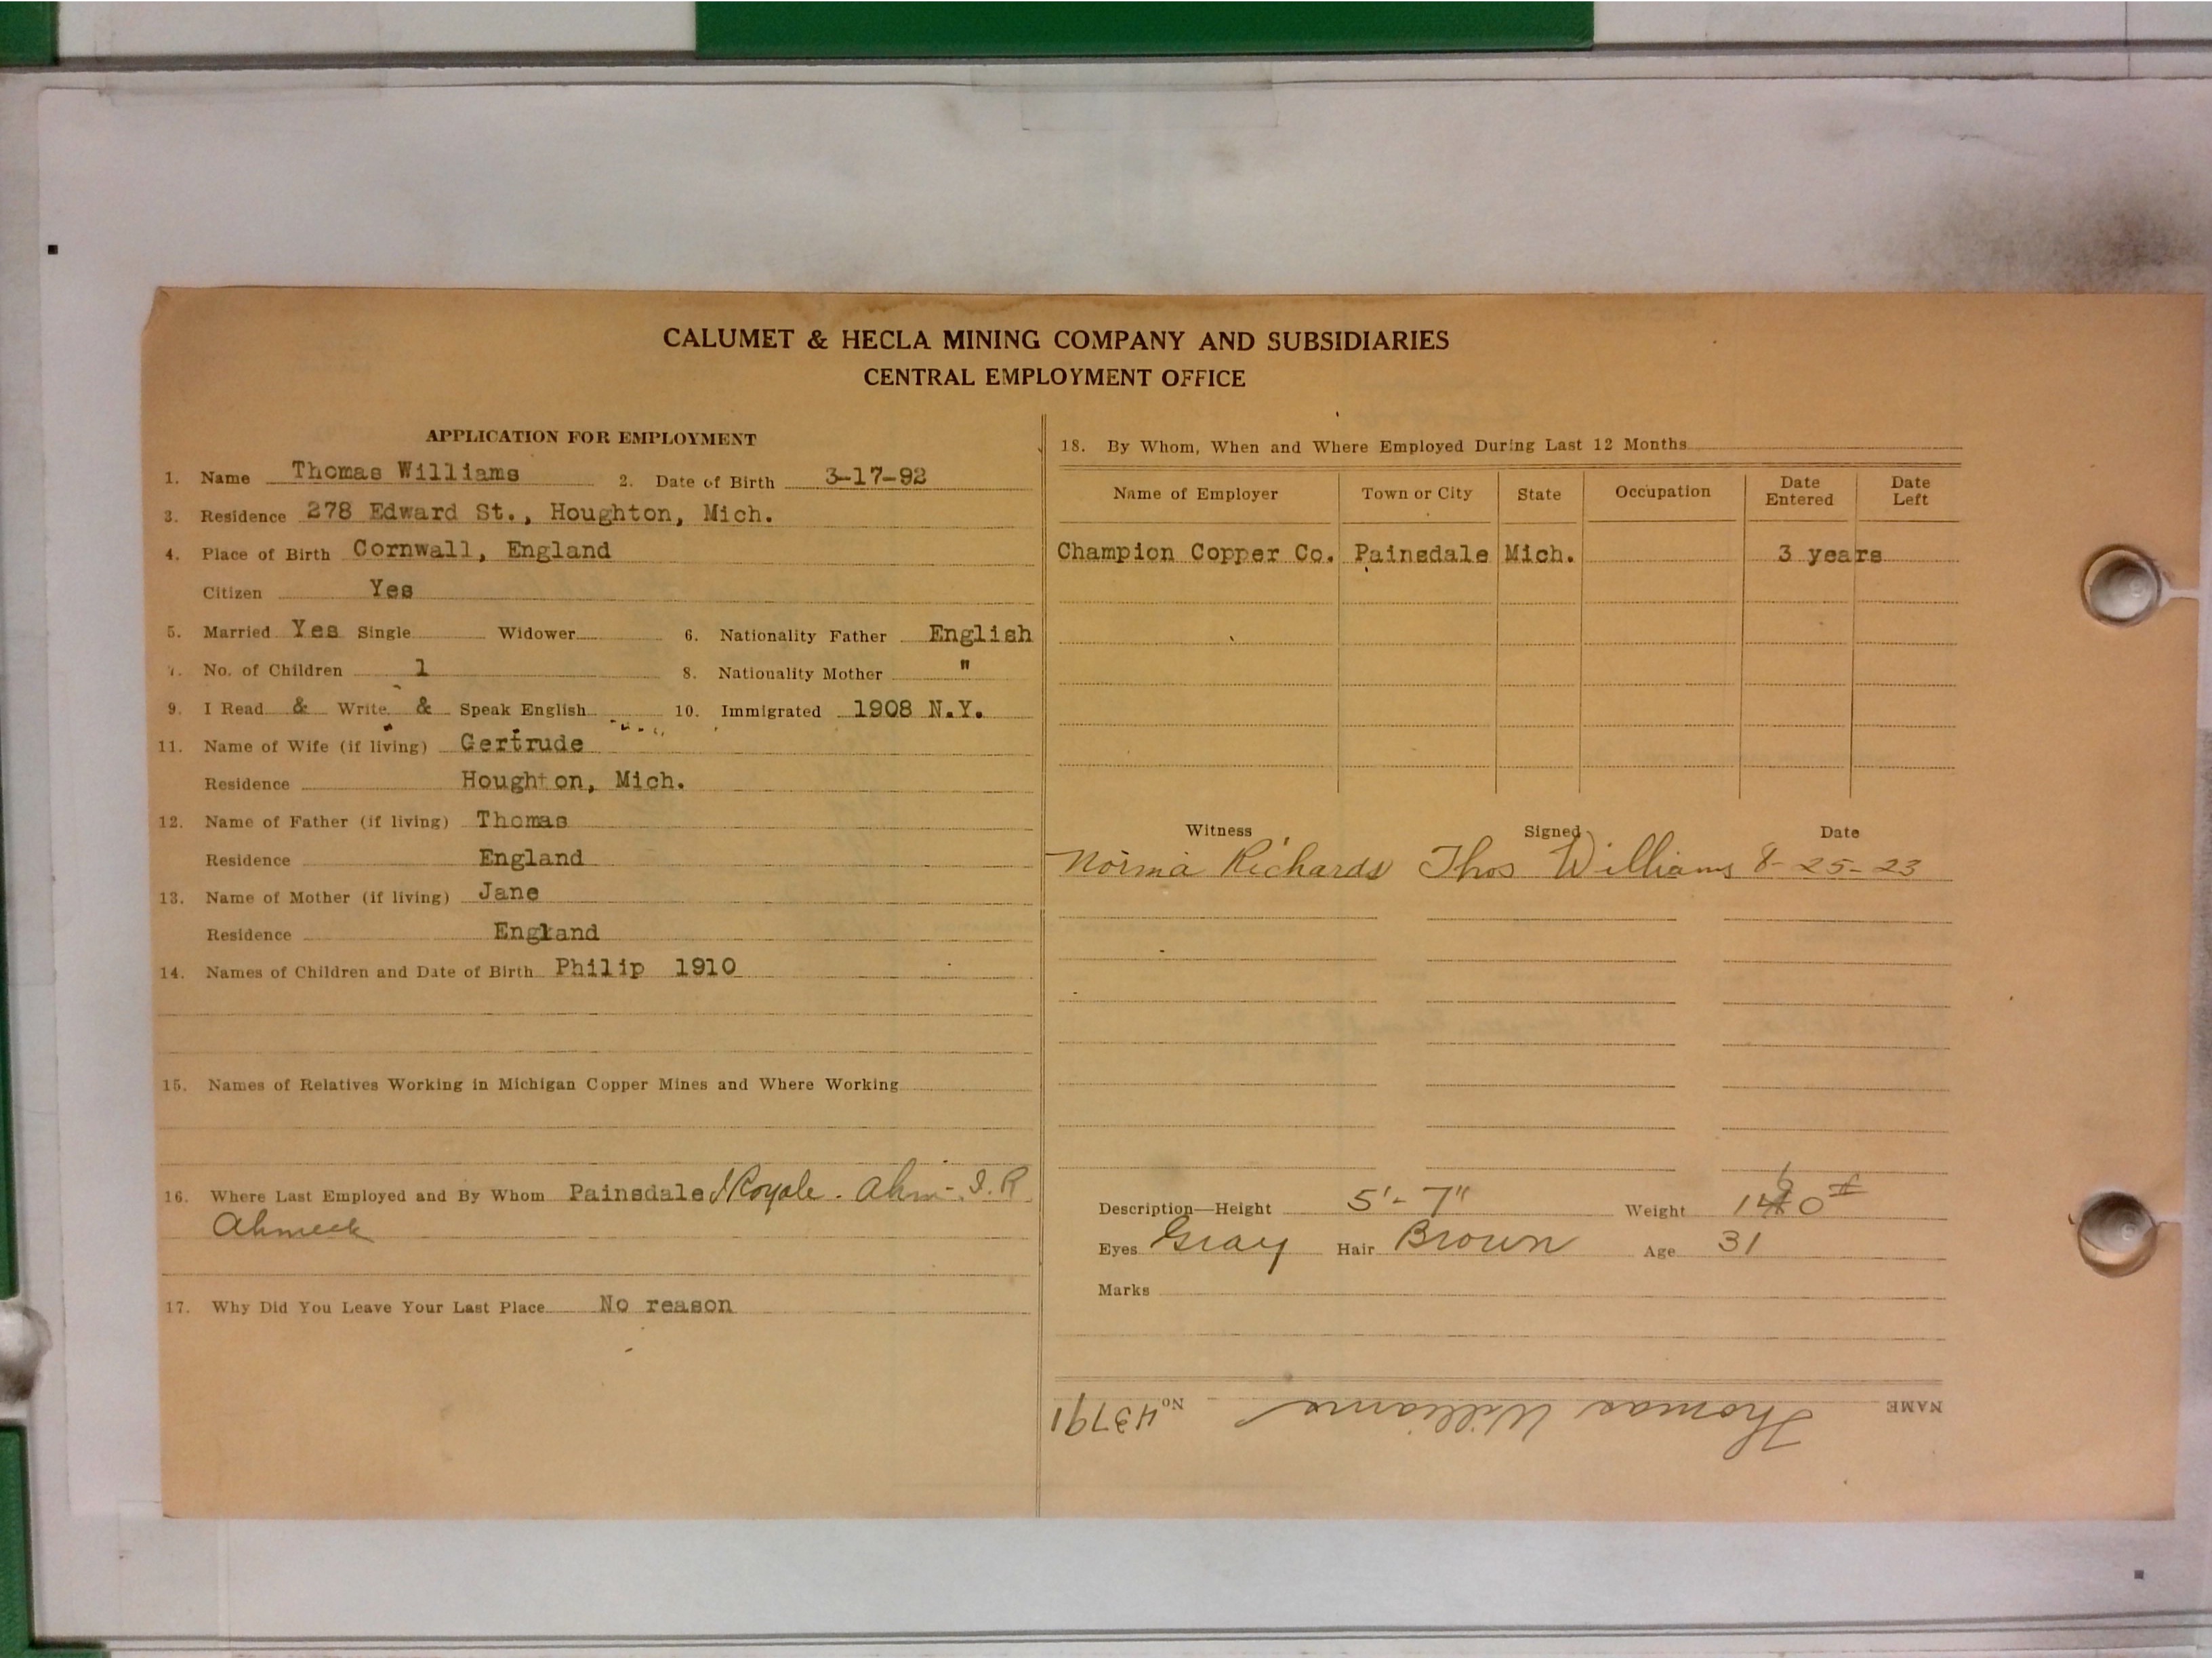 CALUMET & HECLA MINING COMPANY AND SUBSIDIARIES
CENTRAL EMPLOYMENT OFFICE
APPLICATION FOR EMPLOYMENT
1. Name Thomas Williams 2. Date of Birth 3-17-92
3. Residence 278 Edward St., Houghton, Mich.
4. Place of Birth Cornwall, England
Citizen Yes
5. Married Yes Single Widower 6. Nationality Father English
7. No. of Children 1 8. Nationality Mother "
9. I Read & Write & Speak English 10. Immigrated 1908 N.Y.
11. Name of Wife (if living) Gertrude
Residence Houghton, Mich.
12. Name of Father (if living) Thomas
Residence England
13. Name of Mother (if living) Jane
Residence England
14. Names of Children and Date of Birth Philip 1910
15. Names of Relatives Working in Michigan Copper Mines and Where Working
16. Where Last Employed and By Whom Painsdale I Royale. Ahm- I.R
Ahmeek
17. Why Did You Leave Your Last Place No reason
18. By Whom, When and Where Employed During Last 12 Months
Name of Employer Town or City State Occupation Date Entered Date Left
Champion Copper Co. Painsdale Mich. 3 years
Witness Signed Date
Norma Richards Thos Williams 8-25-23
Description—Height 5'-7" Weight 160#
Eyes Gray Hair Brown Age 31
Marks
NAME Thomas Williams No. 43791